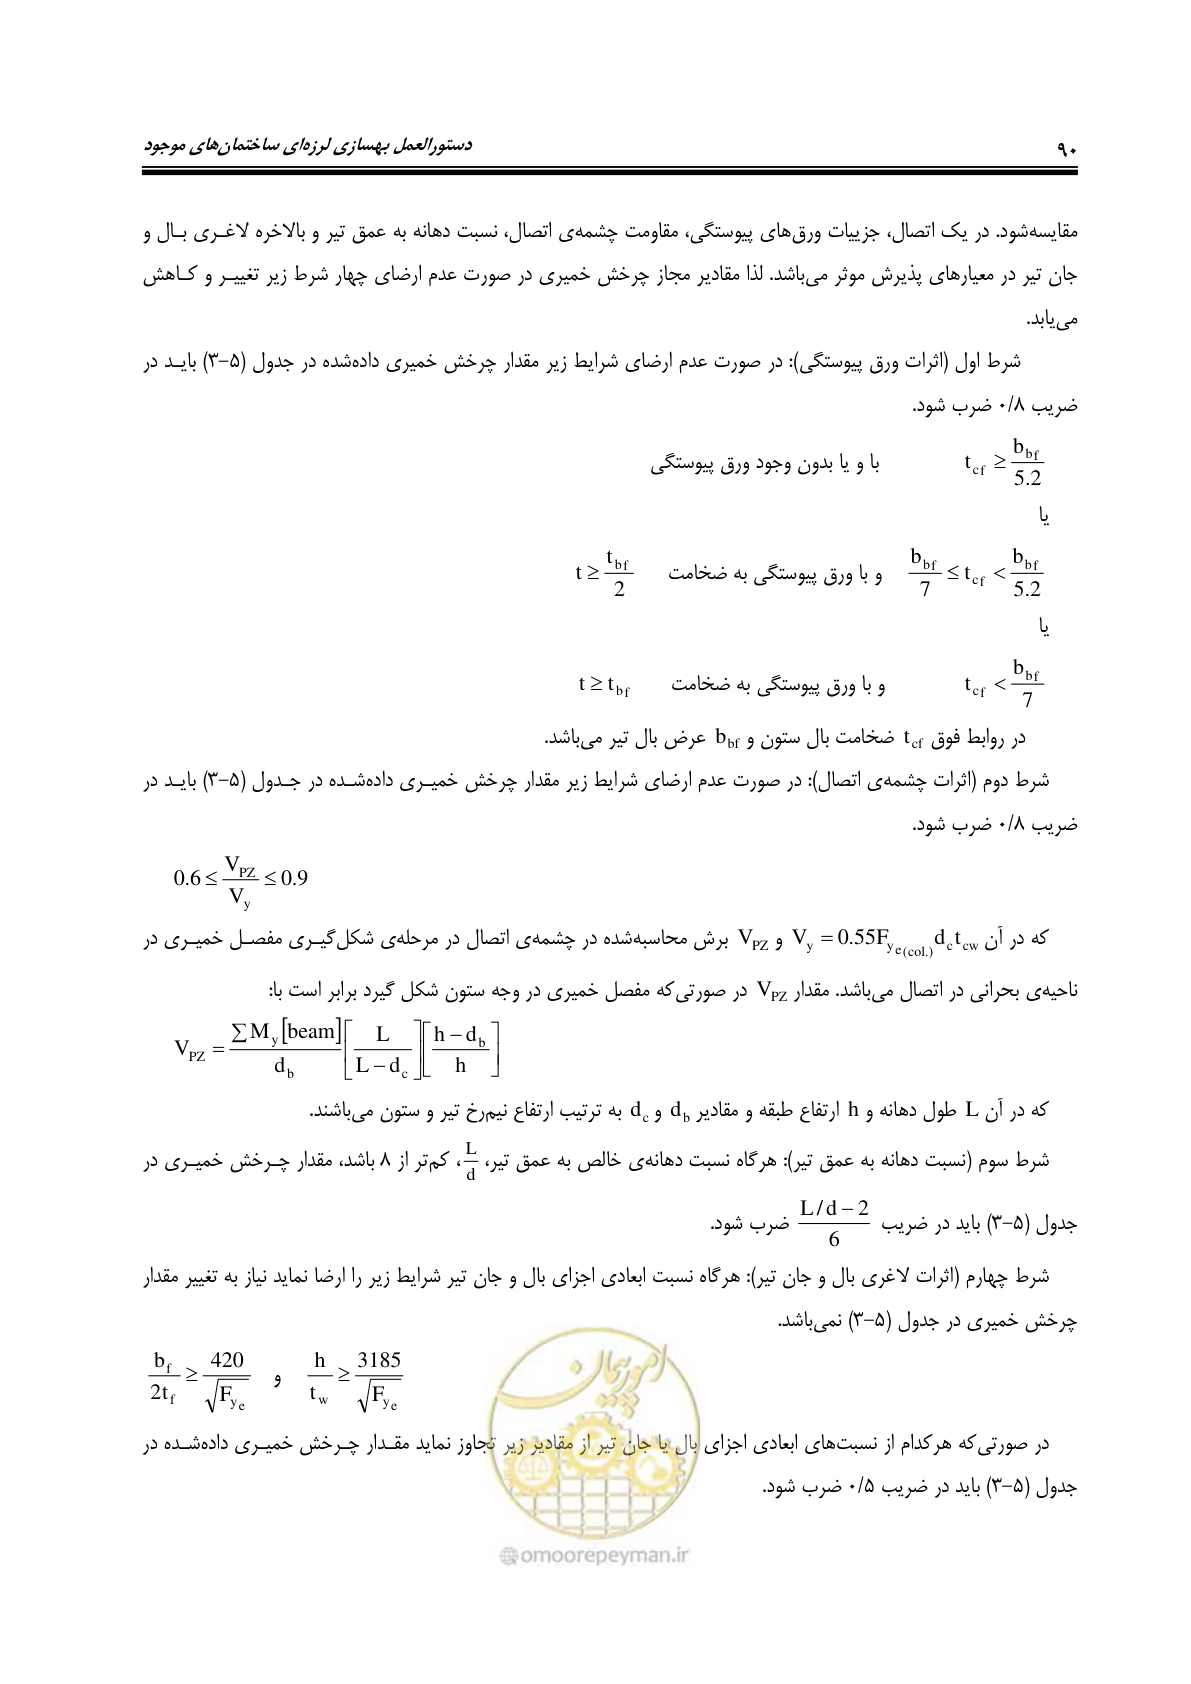 ۹۰ دستورالعمل بهسازی لرزه‌ای ساختمان‌های موجود
مقایسه‌شود. در یک اتصال، جزییات ورق‌های پیوستگی، مقاومت چشمه‌ی اتصال، نسبت دهانه به عمق تیر و بالاخره لاغری بال و
جان تیر در معیارهای پذیرش موثر می‌باشد. لذا مقادیر مجاز چرخش خمیری در صورت عدم ارضای چهار شرط زیر تغییر و کاهش
می‌یابد.
شرط اول (اثرات ورق پیوستگی): در صورت عدم ارضای شرایط زیر مقدار چرخش خمیری داده‌شده در جدول (۵-۳) باید در
ضریب ۰/۸ ضرب شود.
t_cf ≥ b_bf / 5.2 با و یا بدون وجود ورق پیوستگی
یا
b_bf / 7 ≤ t_cf < b_bf / 5.2 و با ورق پیوستگی به ضخامت t ≥ t_bf / 2
یا
t_cf < b_bf / 7 و با ورق پیوستگی به ضخامت t ≥ t_bf
در روابط فوق t_cf ضخامت بال ستون و b_bf عرض بال تیر می‌باشد.
شرط دوم (اثرات چشمه‌ی اتصال): در صورت عدم ارضای شرایط زیر مقدار چرخش خمیری داده‌شده در جدول (۵-۳) باید در
ضریب ۰/۸ ضرب شود.
0.6 ≤ V_PZ / V_y ≤ 0.9
که در آن V_y = 0.55F_ye(col.) d_c t_cw و V_PZ برش محاسبه‌شده در چشمه‌ی اتصال در مرحله‌ی شکل‌گیری مفصل خمیری در
ناحیه‌ی بحرانی در اتصال می‌باشد. مقدار V_PZ در صورتی‌که مفصل خمیری در وجه ستون شکل گیرد برابر است با:
V_PZ = (∑M_y[beam] / d_b) [L / (L − d_c)] [(h − d_b) / h]
که در آن L طول دهانه و h ارتفاع طبقه و مقادیر d_b و d_c به ترتیب ارتفاع نیم‌رخ تیر و ستون می‌باشند.
شرط سوم (نسبت دهانه به عمق تیر): هرگاه نسبت دهانه‌ی خالص به عمق تیر، L/d، کم‌تر از ۸ باشد، مقدار چرخش خمیری در
جدول (۵-۳) باید در ضریب (L/d − 2) / 6 ضرب شود.
شرط چهارم (اثرات لاغری بال و جان تیر): هرگاه نسبت ابعادی اجزای بال و جان تیر شرایط زیر را ارضا نماید نیاز به تغییر مقدار
چرخش خمیری در جدول (۵-۳) نمی‌باشد.
b_f / 2t_f ≥ 420 / √F_ye و h / t_w ≥ 3185 / √F_ye
در صورتی‌که هرکدام از نسبت‌های ابعادی اجزای بال یا جان تیر از مقادیر زیر تجاوز نماید مقدار چرخش خمیری داده‌شده در
جدول (۵-۳) باید در ضریب ۰/۵ ضرب شود.
امور پیمان
@omoorepeyman.ir